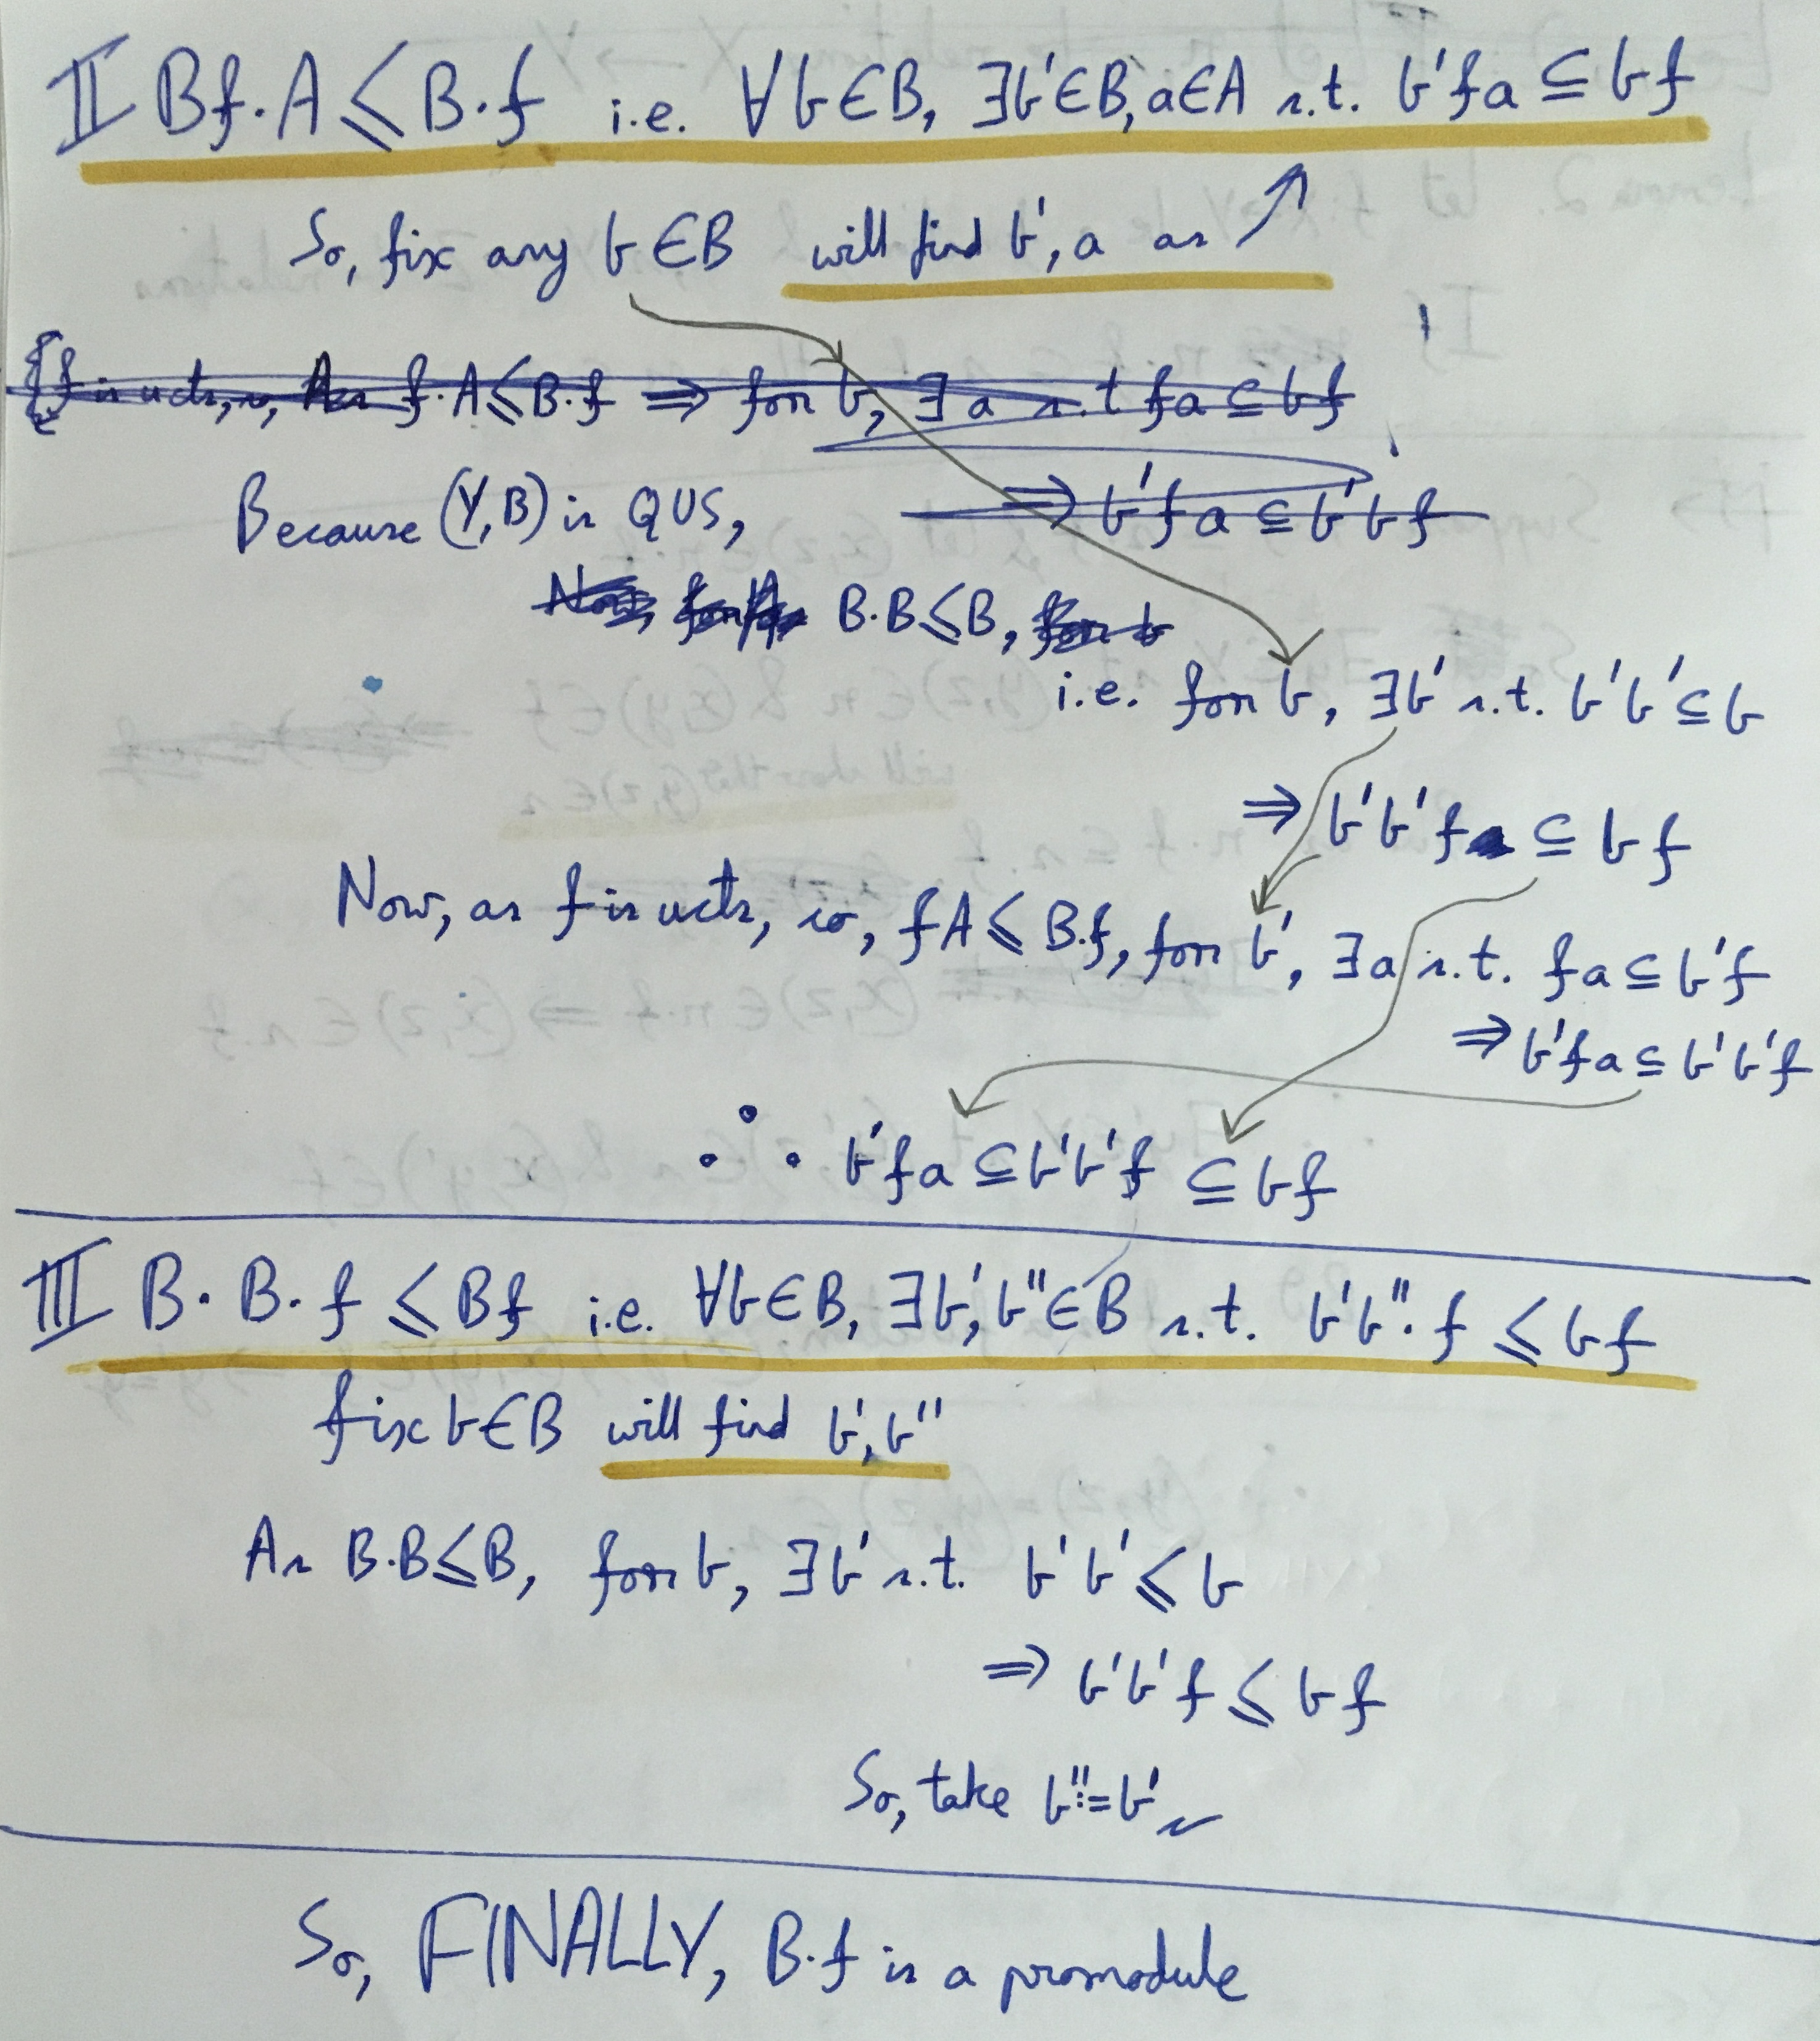 II Bf·A ⩽ B·f i.e. ∀b∈B, ∃b'∈B, a∈A s.t. b'fa ⊆ bf
So, fix any b∈B will find b', a as ↗
f is ucts, so, As f·A⩽B·f ⇒ for b, ∃a s.t fa ⊆ bf
Because (Y,B) is QUS, ⇒ b'fa ⊆ b'bf
Now, for B·B⩽B, for b
i.e. for b, ∃b' s.t. b'b' ⊆ b
⇒ b'b'f ⊆ bf
Now, as f is ucts, so, fA ⩽ B·f, for b', ∃a s.t. fa ⊆ b'f
⇒ b'fa ⊆ b'b'f
∴ b'fa ⊆ b'b'f ⊆ bf
III B·B·f ⩽ Bf i.e. ∀b∈B, ∃b',b''∈B s.t. b'b''·f ⩽ bf
fix b∈B will find b',b''
As B·B⩽B, for b, ∃b' s.t. b'b' ⩽ b
⇒ b'b'f ⩽ bf
So, take b'':=b'
So, FINALLY, B·f is a promodule